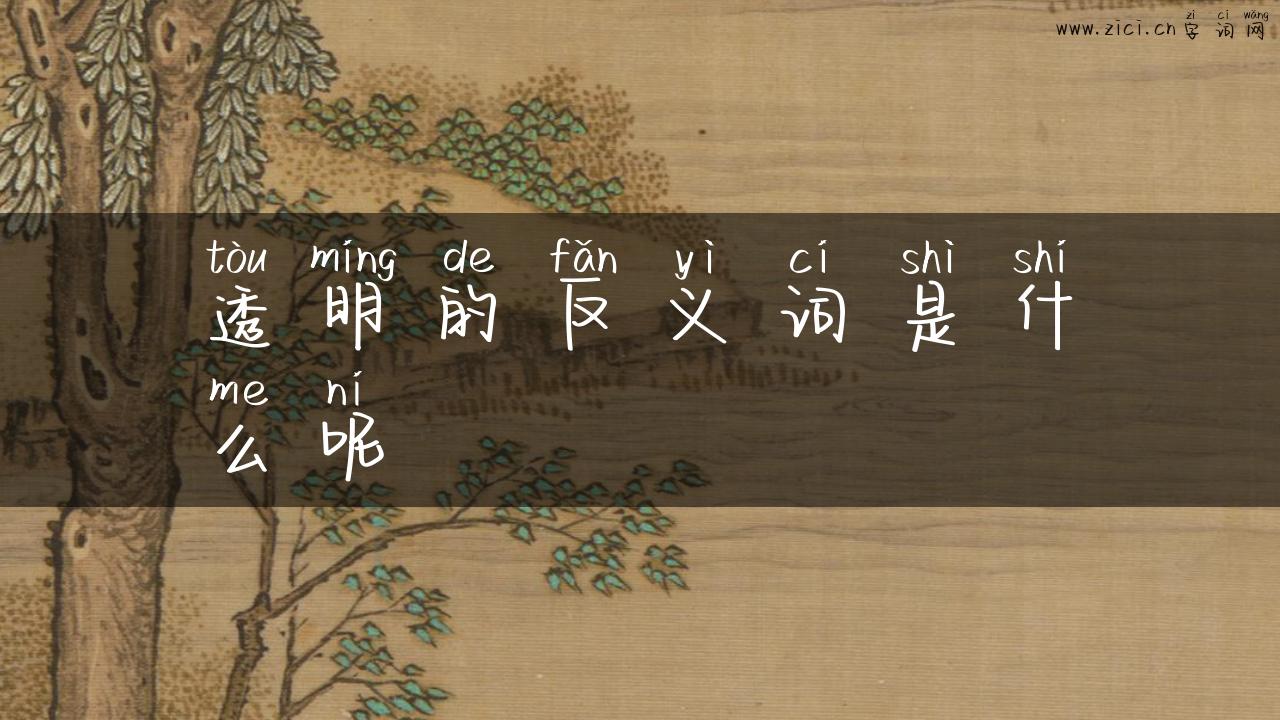 zì cí wǎng
www.zici.cn 字词网
tòu míng de fǎn yì cí shì shí
透明的反义词是什
me ní
么呢